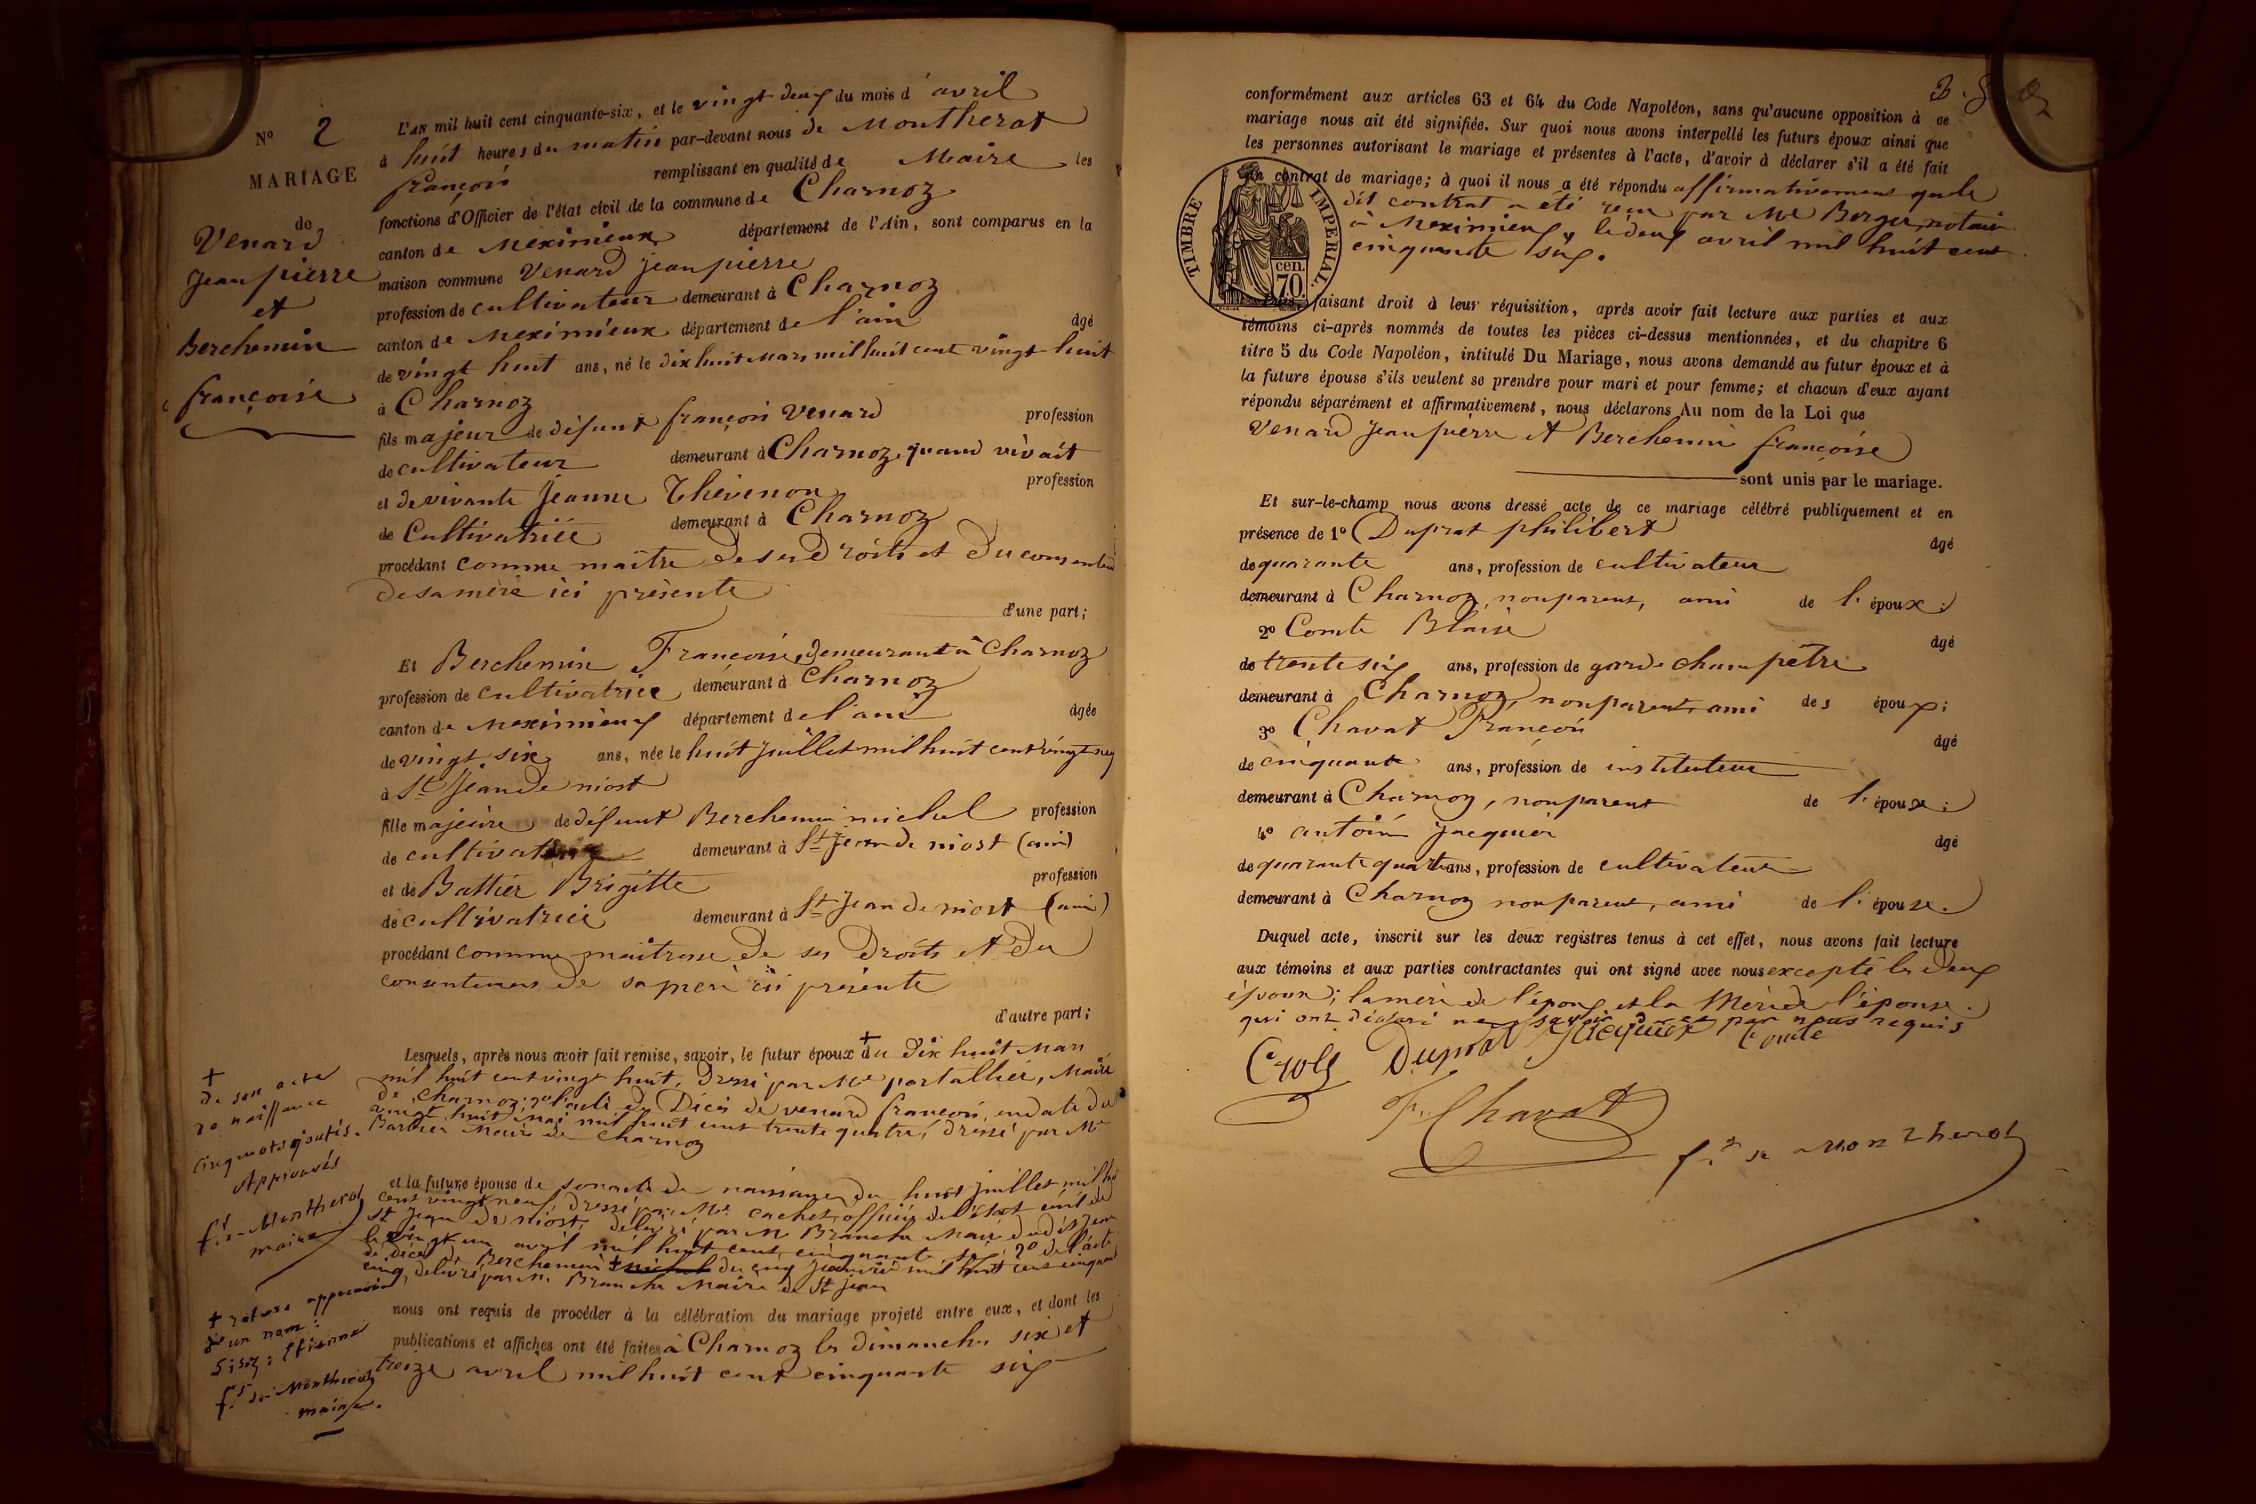 N° 2
MARIAGE
de
Venard
Jean pierre
et
Berchemin
françoise
L'AN mil huit cent cinquante-six, et le vingt deux du mois d'avril
à huit heures du matin par-devant nous de Montherot
françois remplissant en qualité de Maire les
fonctions d'Officier de l'état civil de la commune de Charnoz
canton de Meximieux département de l'Ain, sont comparus en la
maison commune Venard jean pierre
profession de cultivateur demeurant à Charnoz
canton de Meximieux département de l'ain âgé
de vingt huit ans, né le dix huit Mars mil huit cent vingt huit
à Charnoz
fils majeur de défunt françois Venard profession
de cultivateur demeurant à Charnoz, quand vivait
et de vivante Jeanne Thévenon profession
de Cultivatrice demeurant à Charnoz
procédant comme maître de ses Droits et Du
de sa mère ici présente
d'une part;
Et Berchemin Françoise, demeurant à Charnoz
profession de cultivatrice demeurant à Charnoz
canton de Meximieux département de l'ain âgée
de vingt six ans, née le huit juillet mil huit cent vingt
à St Jean de niost
fille majeure de défunt Berchemin michel profession
de demeurant à St Jean de niost (ain)
et de Battier Brigitte profession
de cultivatrice demeurant à St Jean de niost (ain)
procédant comme maitresse de ses Droits et du
consentement de sa mère ici présente
d'autre part;
Lesquels, après nous avoir fait remise, savoir, le futur époux + du Dix huit Mars
mil huit cent vingt huit, Dressé par Me portallier, Maire
de Charnoz; 2° l'acte de Décès de venard françois, en date du
vingt huit mai mil huit cent trente quatre, dressé par Me
Barbier Maire de Charnoz
et la future épouse de son acte de naissance du huit juillet mil
cent vingt neuf, dressé par Me Cachet, officier de l'état civil de
St Jean de niost, délivré par M Branche Maire dudit
le vingt un avril mil huit cent cinquante six; 2° de l'acte
de Décès de Berchemin + michel du cinq Janvier mil huit cent
cinq, délivré par M. Branche Maire de St Jean
nous ont requis de procéder à la célébration du mariage projeté entre eux, et dont les
publications et affiches ont été faites à Charnoz les dimanches six et
treize avril mil huit cent cinquante six
+
de son acte
de naissance
cinq mots ajoutés.
Approuvés
f.s de Montherot
maire
+ rature approuvée
d'un nom:
Lisez: Etienne
f.s de Montherot
maire.
conformément aux articles 63 et 64 du Code Napoléon, sans qu'aucune opposition à ce
mariage nous ait été signifiée. Sur quoi nous avons interpellé les futurs époux ainsi que
les personnes autorisant le mariage et présentes à l'acte, d'avoir à déclarer s'il a été fait
un contrat de mariage; à quoi il nous a été répondu affirmativement que le
dit contrat a été reçu par Me Berger, notaire
à Meximieux, le deux avril mil huit cent
cinquante six.
TIMBRE IMPERIAL.
cen.
70.
Puis, faisant droit à leur réquisition, après avoir fait lecture aux parties et aux
témoins ci-après nommés de toutes les pièces ci-dessus mentionnées, et du chapitre 6
titre 5 du Code Napoléon, intitulé Du Mariage, nous avons demandé au futur époux et à
la future épouse s'ils veulent se prendre pour mari et pour femme; et chacun d'eux ayant
répondu séparément et affirmativement, nous déclarons Au nom de la Loi que
Venard Jean pierre et Berchemin françoise
sont unis par le mariage.
Et sur-le-champ nous avons dressé acte de ce mariage célébré publiquement et en
présence de 1° Duprat philibert âgé
de quarante ans, profession de cultivateur
demeurant à Charnoz, non parent, ami de l'époux;
2° Comte Blaise âgé
de trente six ans, profession de garde champêtre
demeurant à Charnoz, non parent, ami des époux;
3° Chavat François âgé
de cinquante ans, profession de instituteur
demeurant à Charnoz, non parent de l'épouse;
4° antoine jacquier âgé
de quarante quatre ans, profession de cultivateur
demeurant à Charnoz non parent, ami de l'épouse.
Duquel acte, inscrit sur les deux registres tenus à cet effet, nous avons fait lecture
aux témoins et aux parties contractantes qui ont signé avec nous excepté les deux
époux; la mère de l'époux et la Mère de l'épouse
qui ont déclaré ne savoir de ce par nous requis
Duprat Jacquier Comte
F. Chavat
f.s de Montherot